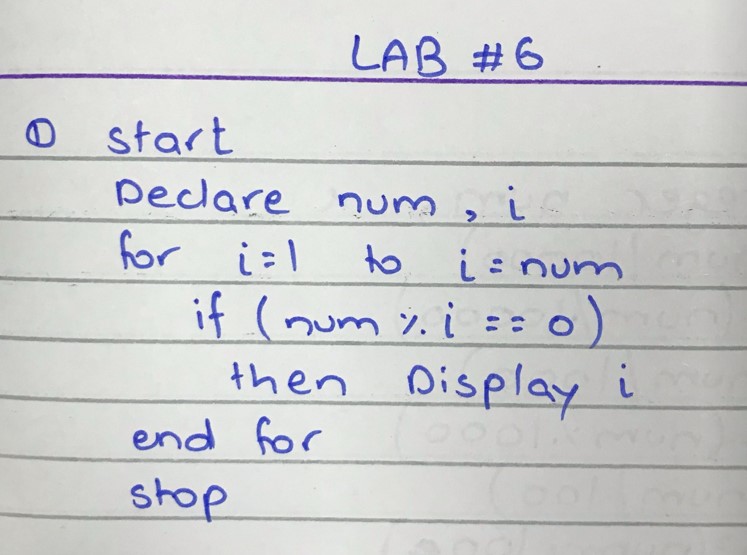 LAB #6
① start
Declare num, i
for i=1 to i=num
if (num % i == 0)
then Display i
end for
stop